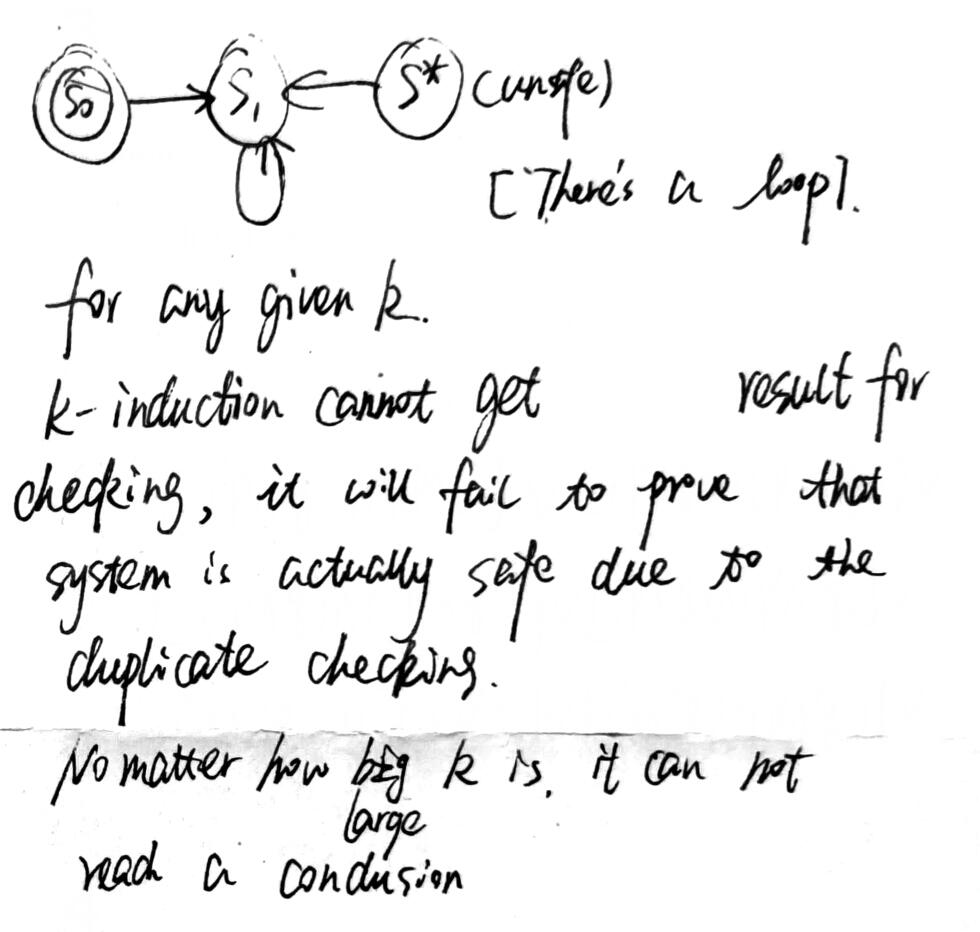 S0 S1 S* (unsafe)
[There's a loop].
for any given k.
k-induction cannot get result for
checking, it will fail to prove that
system is actually safe due to the
duplicate checking.
No matter how big k is. it can not
large
reach a conclusion